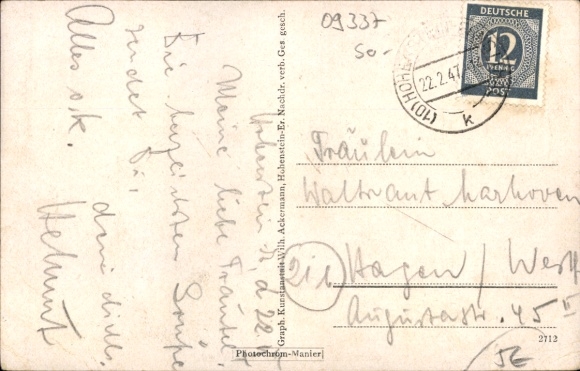 09337
50-
DEUTSCHE
12
PFENNIG
POST
(10) HOHENSTEIN
22.2.47
k
Hohenstein
Meine liebe Traudel
Die herzlichsten Grüße
sendet Dir
Alles ok.
dein dich
Helmut
Graph. Kunstanstalt Wilh. Ackermann, Hohenstein-Er. Nachdr. verb. Ges. gesch.
Fräulein
Waltraut
21
Hagen / Westf
Augustastr. 45 II
2712
Photochrom-Manier